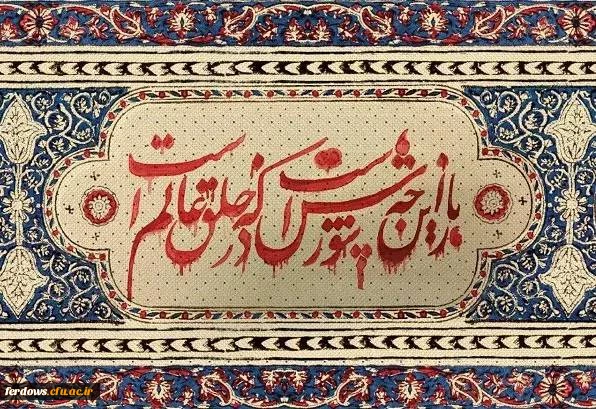 باز این چه شورش است که در خلق عالم است
ferdows.cfu.ac.ir